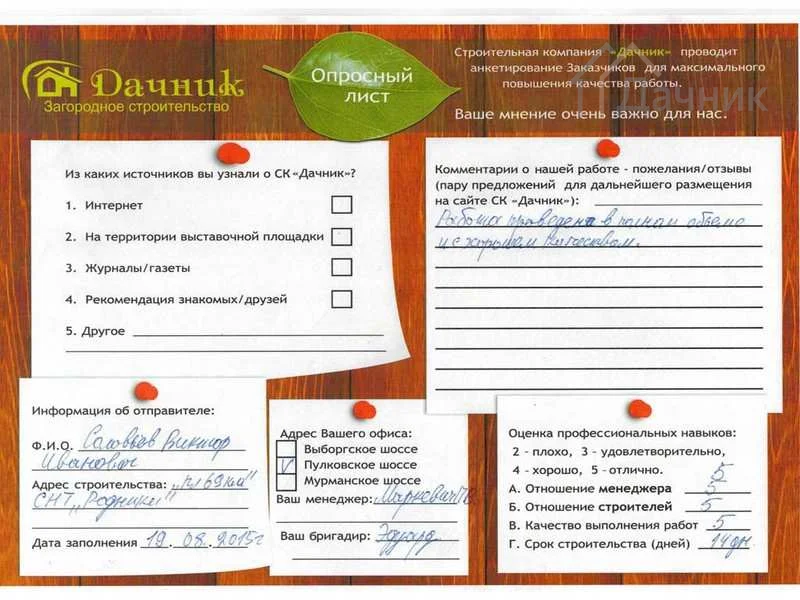 Дачник
Загородное строительство
Опросный
лист
Строительная компания «Дачник» проводит
анкетирование Заказчиков для максимального
повышения качества работы.
Дачник
Ваше мнение очень важно для нас.
Из каких источников вы узнали о СК «Дачник»?
1. Интернет
2. На территории выставочной площадки
3. Журналы/газеты
4. Рекомендация знакомых/друзей
5. Другое
Комментарии о нашей работе - пожелания/отзывы
(пару предложений для дальнейшего размещения
на сайте СК «Дачник»):
Работа проведена в полном объеме
и с хорошим качеством.
Информация об отправителе:
Ф.И.О. Соловьев Виктор
Иванович
Адрес строительства: "пл 69 км"
СНТ "Родники"
Дата заполнения 19. 08. 2015г
Адрес Вашего офиса:
Выборгское шоссе
V Пулковское шоссе
Мурманское шоссе
Ваш менеджер: Маркович
Ваш бригадир: Эдуард
Оценка профессиональных навыков:
2 - плохо, 3 - удовлетворительно,
4 - хорошо, 5 - отлично. 5
А. Отношение менеджера 5
Б. Отношение строителей 5
В. Качество выполнения работ 5
Г. Срок строительства (дней) 14 дн